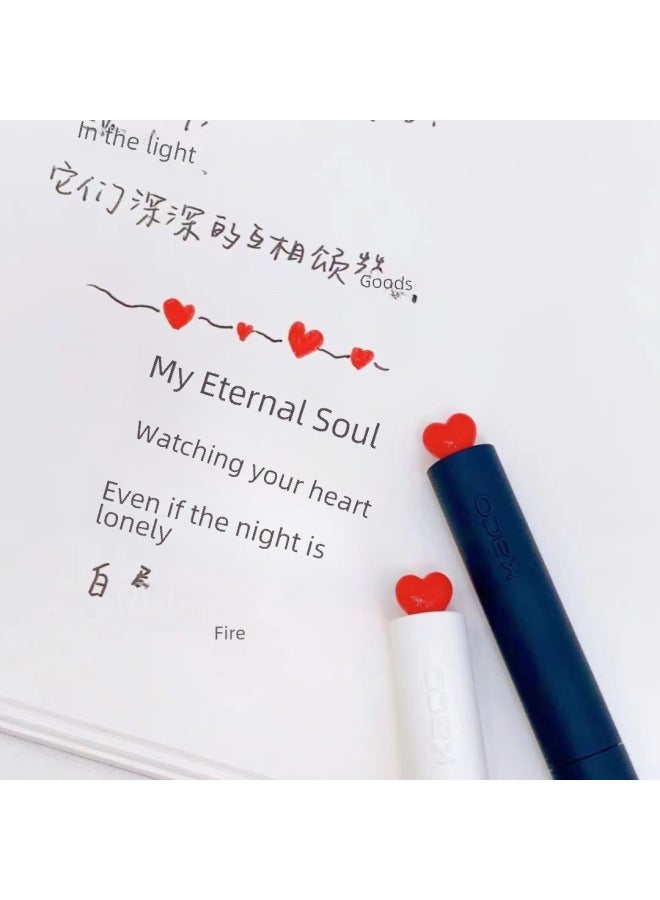 In the light
它们深深的互相颂
Goods
My Eternal Soul
Watching your heart
Even if the night is
lonely
白
Fire
KACO
KACO